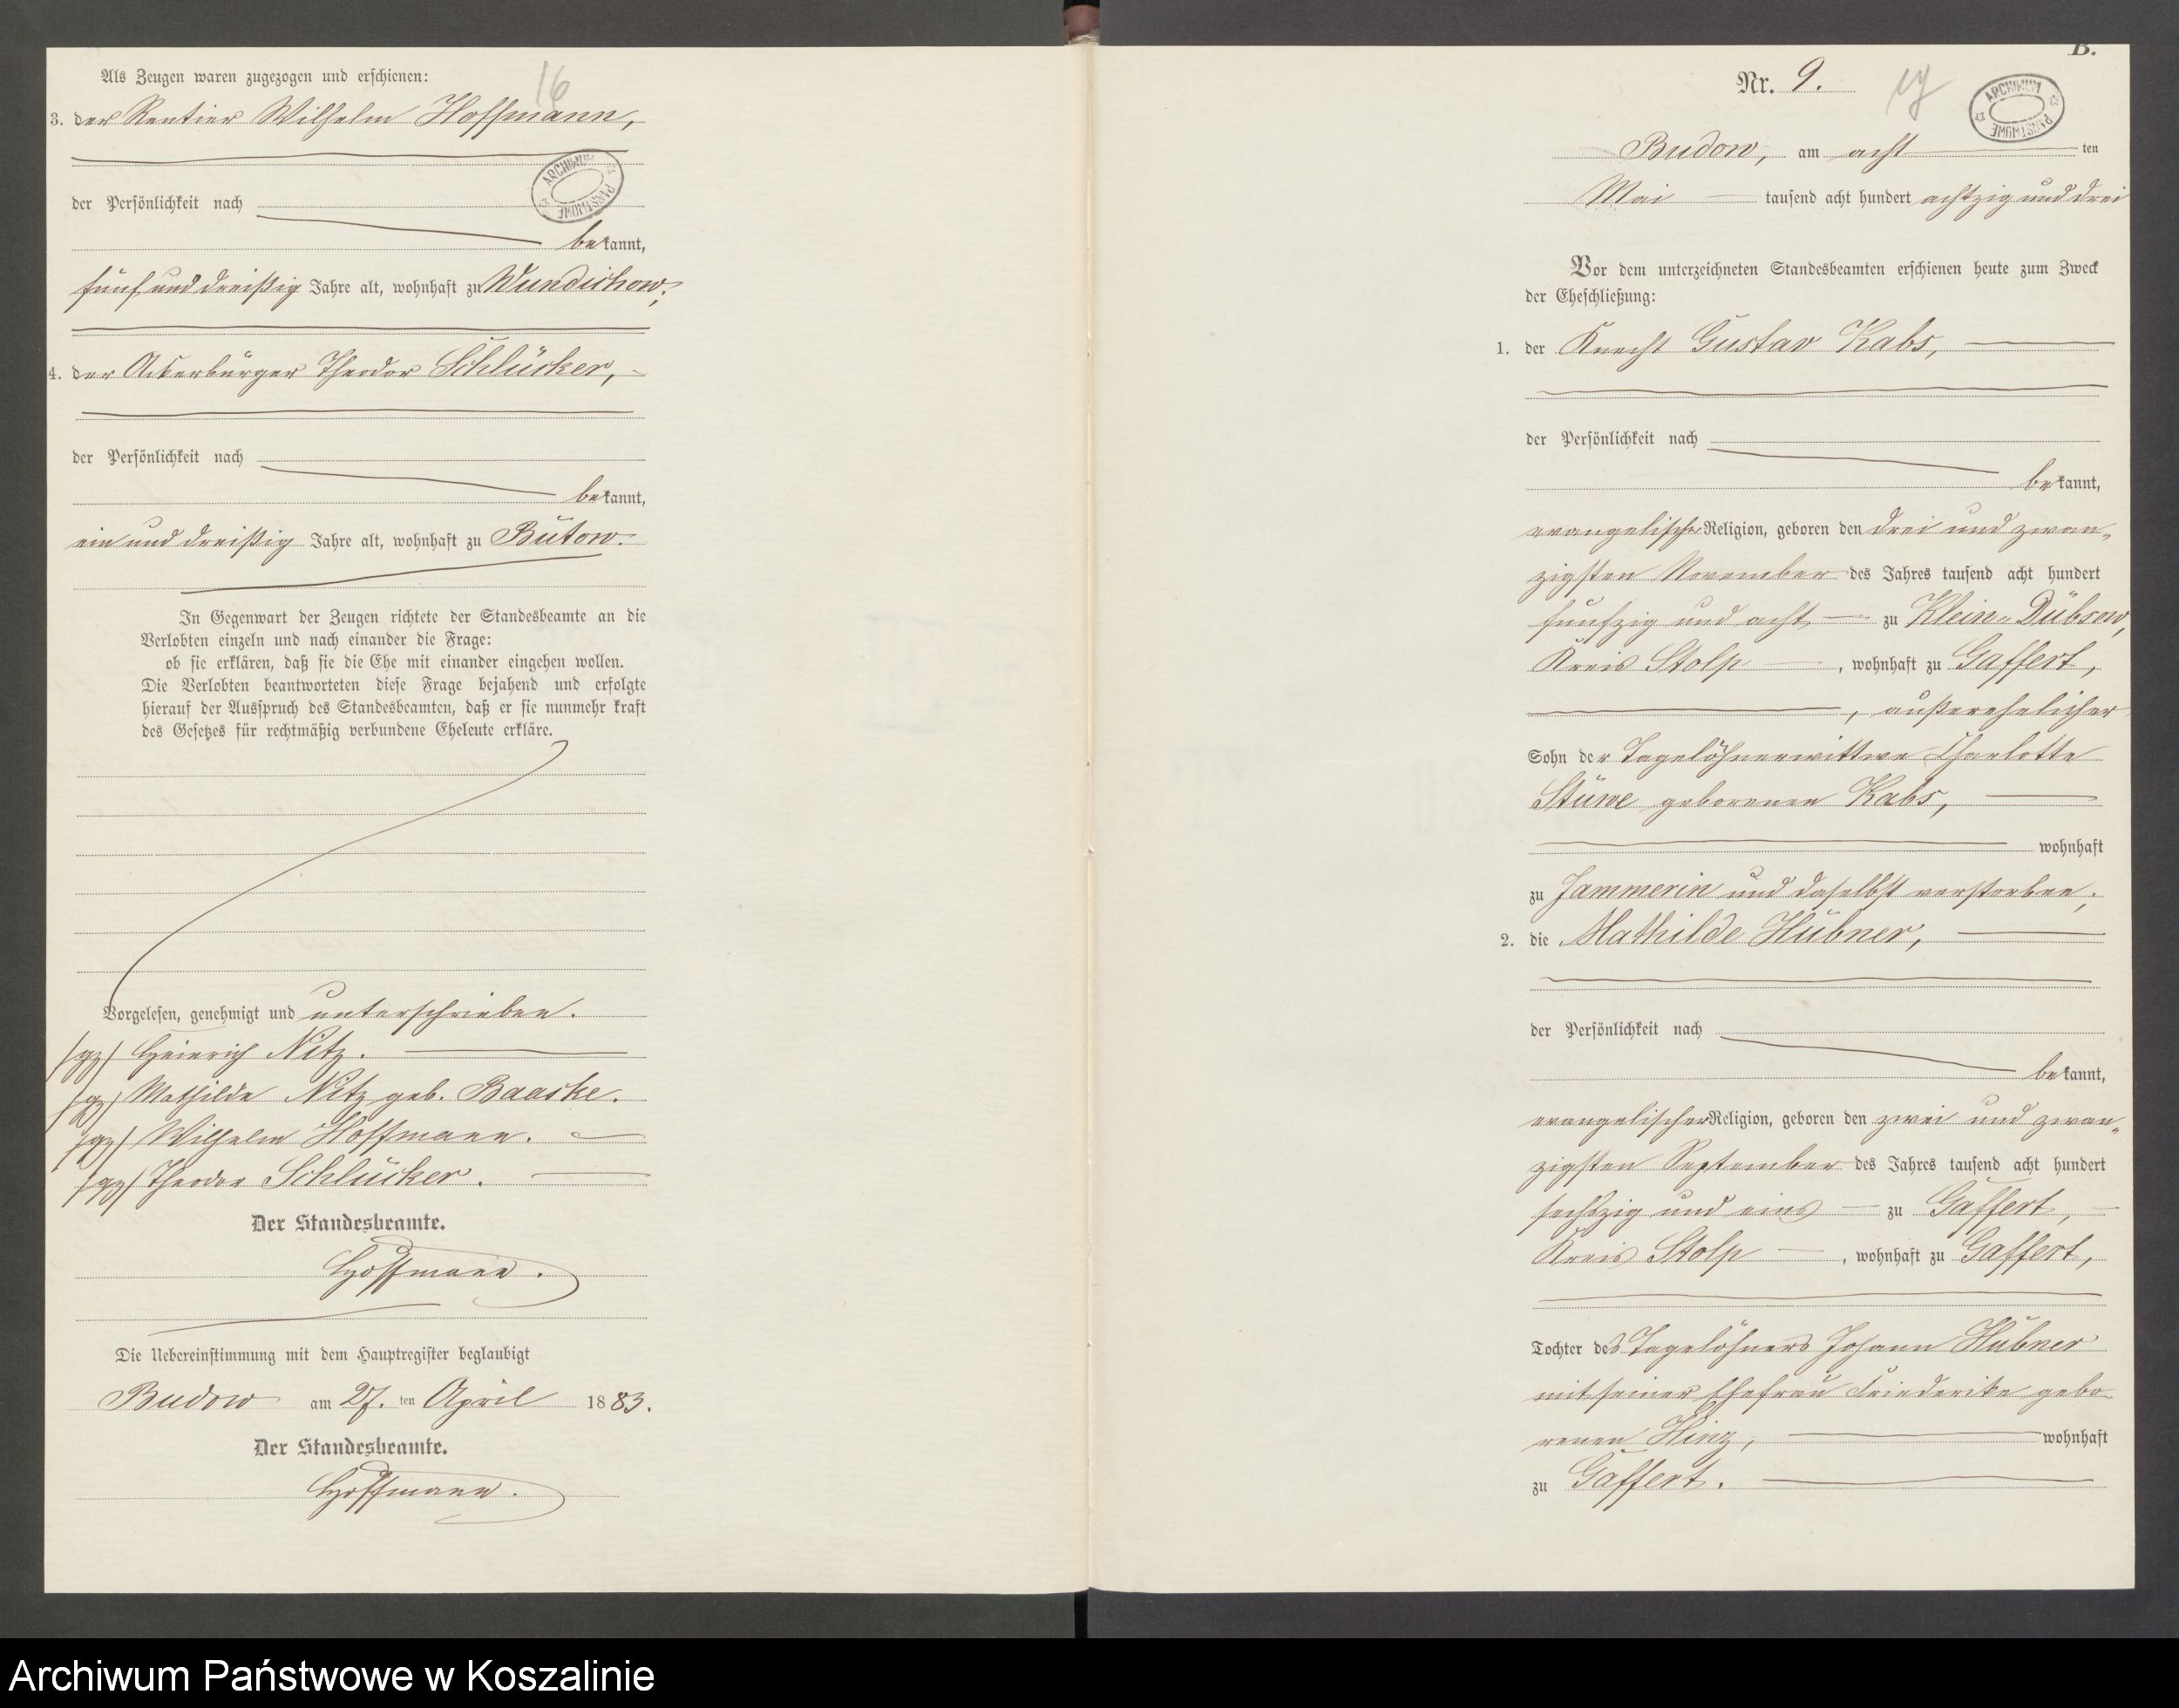 Als Zeugen waren zugezogen und erschienen:
16
3. der Rentier Wilhelm Hoffmann,
ARCHIWUM PAŃSTWOWE
der Persönlichkeit nach
bekannt,
fünf und dreißig Jahre alt, wohnhaft zu Wundichow;
4. der Ackerbürger Theodor Schlücker,
der Persönlichkeit nach
bekannt,
ein und dreißig Jahre alt, wohnhaft zu Bütow.
In Gegenwart der Zeugen richtete der Standesbeamte an die
Verlobten einzeln und nach einander die Frage:
ob sie erklären, daß sie die Ehe mit einander eingehen wollen.
Die Verlobten beantworteten diese Frage bejahend und erfolgte
hierauf der Ausspruch des Standesbeamten, daß er sie nunmehr kraft
des Gesetzes für rechtmäßig verbundene Eheleute erkläre.
Vorgelesen, genehmigt und unterschrieben.
/gz/ Heinrich Nitz.
/gz/ Mathilde Nitz geb. Baaske.
/gz/ Wilhelm Hoffmann.
/gz/ Theodor Schlücker.
Der Standesbeamte.
Hoffmann.
Die Uebereinstimmung mit dem Hauptregister beglaubigt
Budow am 27. ten April 1883.
Der Standesbeamte.
Hoffmann.
B.
Nr. 9.
17
ARCHIWUM PAŃSTWOWE
Budow, am acht ten
Mai tausend acht hundert achtzig und drei
Vor dem unterzeichneten Standesbeamten erschienen heute zum Zweck
der Eheschließung:
1. der Knecht Gustav Kabs,
der Persönlichkeit nach
bekannt,
evangelischer Religion, geboren den drei und zwan„
zigsten November des Jahres tausend acht hundert
fünfzig und acht zu Klein„Dübsow,
Kreis Stolp, wohnhaft zu Gaffert,
, außerehelicher
Sohn der Tagelöhnerwittwe Charlotte
Stüwe geborenen Kabs,
wohnhaft
zu Jammerin und daselbst verstorben;
2. die Mathilde Hübner,
der Persönlichkeit nach
bekannt,
evangelischer Religion, geboren den zwei und zwan„
zigsten September des Jahres tausend acht hundert
sechszig und eins zu Gaffert,
Kreis Stolp, wohnhaft zu Gaffert,
Tochter des Tagelöhners Johann Hübner
mit seiner Ehefrau Friederike gebo-
renen Hinz, wohnhaft
zu Gaffert.
Archiwum Państwowe w Koszalinie